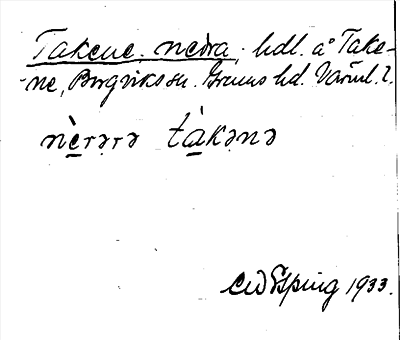 Takene, nedra, hdl. å Take-
ne, Borgviks sn. Grums hd. Värml. l.
nèrərə tàkənə
CW Esping 1933.